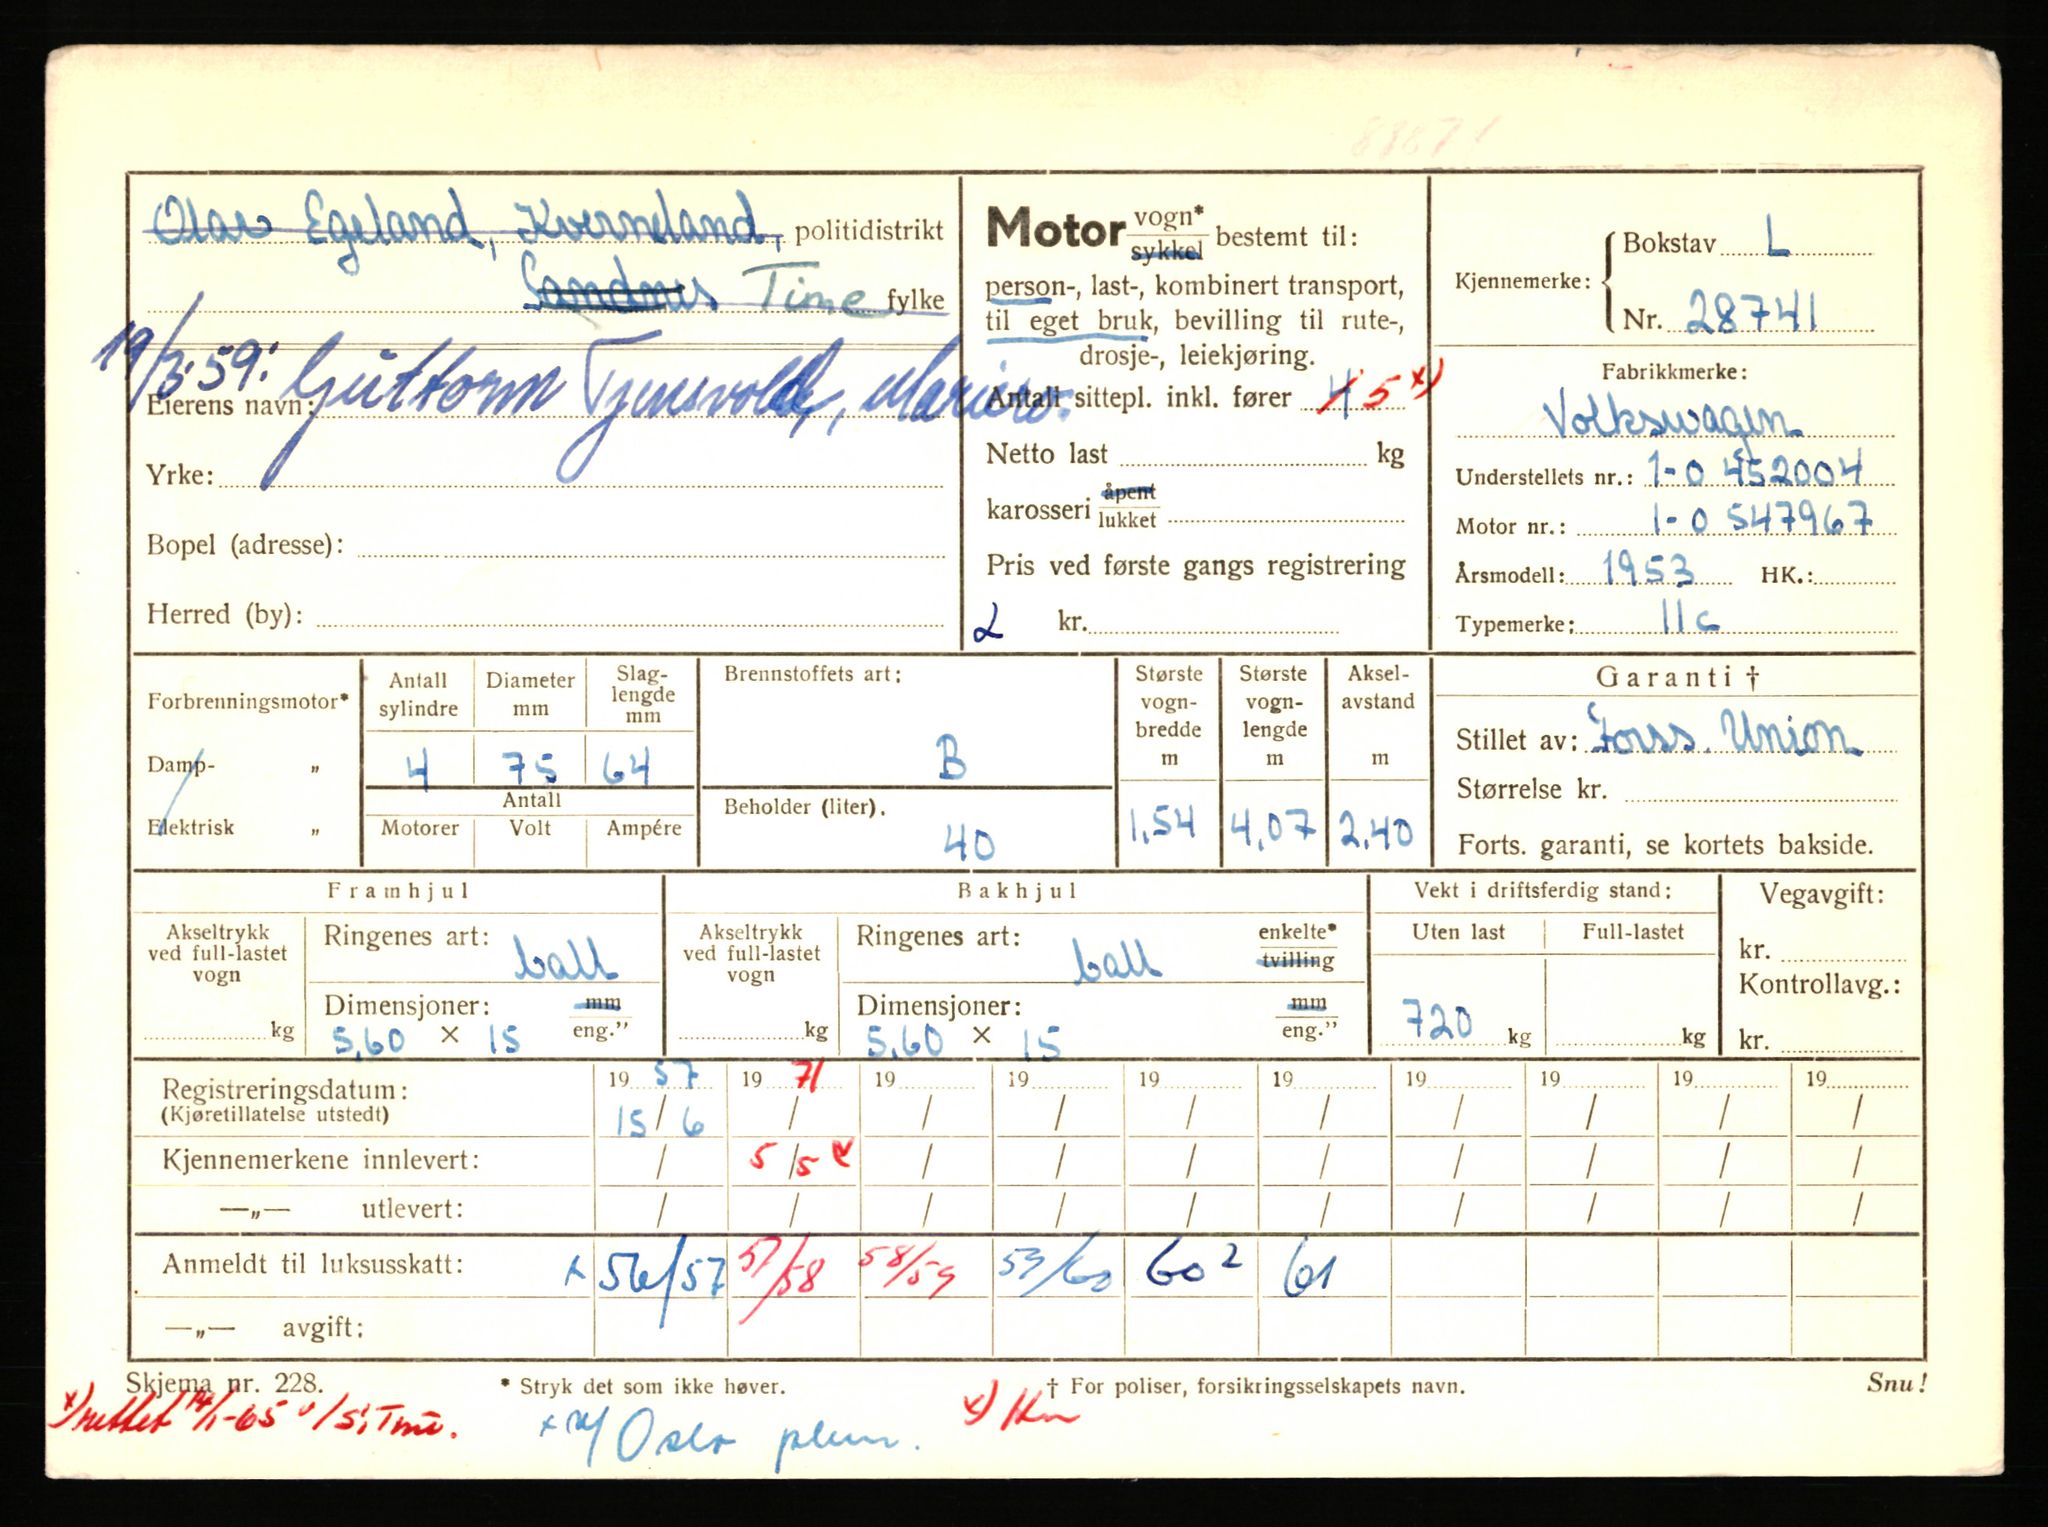 Olav Egeland, Kverneland, politidistrikt
Sandnes Time fylke
19/3.59: Guttorm Tjensvold, Mariero.
Eierens navn:
Yrke:
Bopel (adresse):
Herred (by):
Motor vogn* / sykkel bestemt til:
person-, last-, kombinert transport,
til eget bruk, bevilling til rute-,
drosje-, leiekjøring.
Antall sittepl. inkl. fører 4 5 x)
Netto last kg
karosseri åpent / lukket
Pris ved første gangs registrering
2 kr.
Kjennemerke: Bokstav L
Nr. 28741
Fabrikkmerke:
Volkswagen
Understellets nr.: 1-0 452004
Motor nr.: 1-0 547967
Årsmodell: 1953 HK.:
Typemerke: 11c
Forbrenningsmotor*
Damp- „
Elektrisk „
Antall sylindre 4
Diameter mm 75
Slag-lengde mm 64
Antall
Motorer Volt Ampére
Brennstoffets art:
B
Beholder (liter).
40
Største vogn-bredde m 1,54
Største vogn-lengde m 4,07
Aksel-avstand m 2,40
Garanti †
Stillet av: Forss. Union
Størrelse kr.
Forts. garanti, se kortets bakside.
Framhjul
Akseltrykk ved full-lastet vogn kg
Ringenes art: ball
Dimensjoner: mm / eng.”
5,60 × 15
Bakhjul
Akseltrykk ved full-lastet vogn kg
Ringenes art: ball enkelte* / tvilling
Dimensjoner: mm / eng.”
5.60 × 15
Vekt i driftsferdig stand:
Uten last Full-lastet
720 kg kg
Vegavgift:
kr.
Kontrollavg.:
kr.
Registreringsdatum: 19 57 19 71 19 19 19 19 19 19 19 19
(Kjøretillatelse utstedt) 15/6 / / / / / / / / /
Kjennemerkene innlevert: / 5/5 x / / / / / / / /
—„— utlevert: / / / / / / / / / /
Anmeldt til luksusskatt: x 56/57 57/58 58/59 59/60 60 2 61
—„— avgift:
Skjema nr. 228. * Stryk det som ikke høver. † For poliser, forsikringsselskapets navn. Snu!
x) rettet 14/1-65 Time.
x Oslo